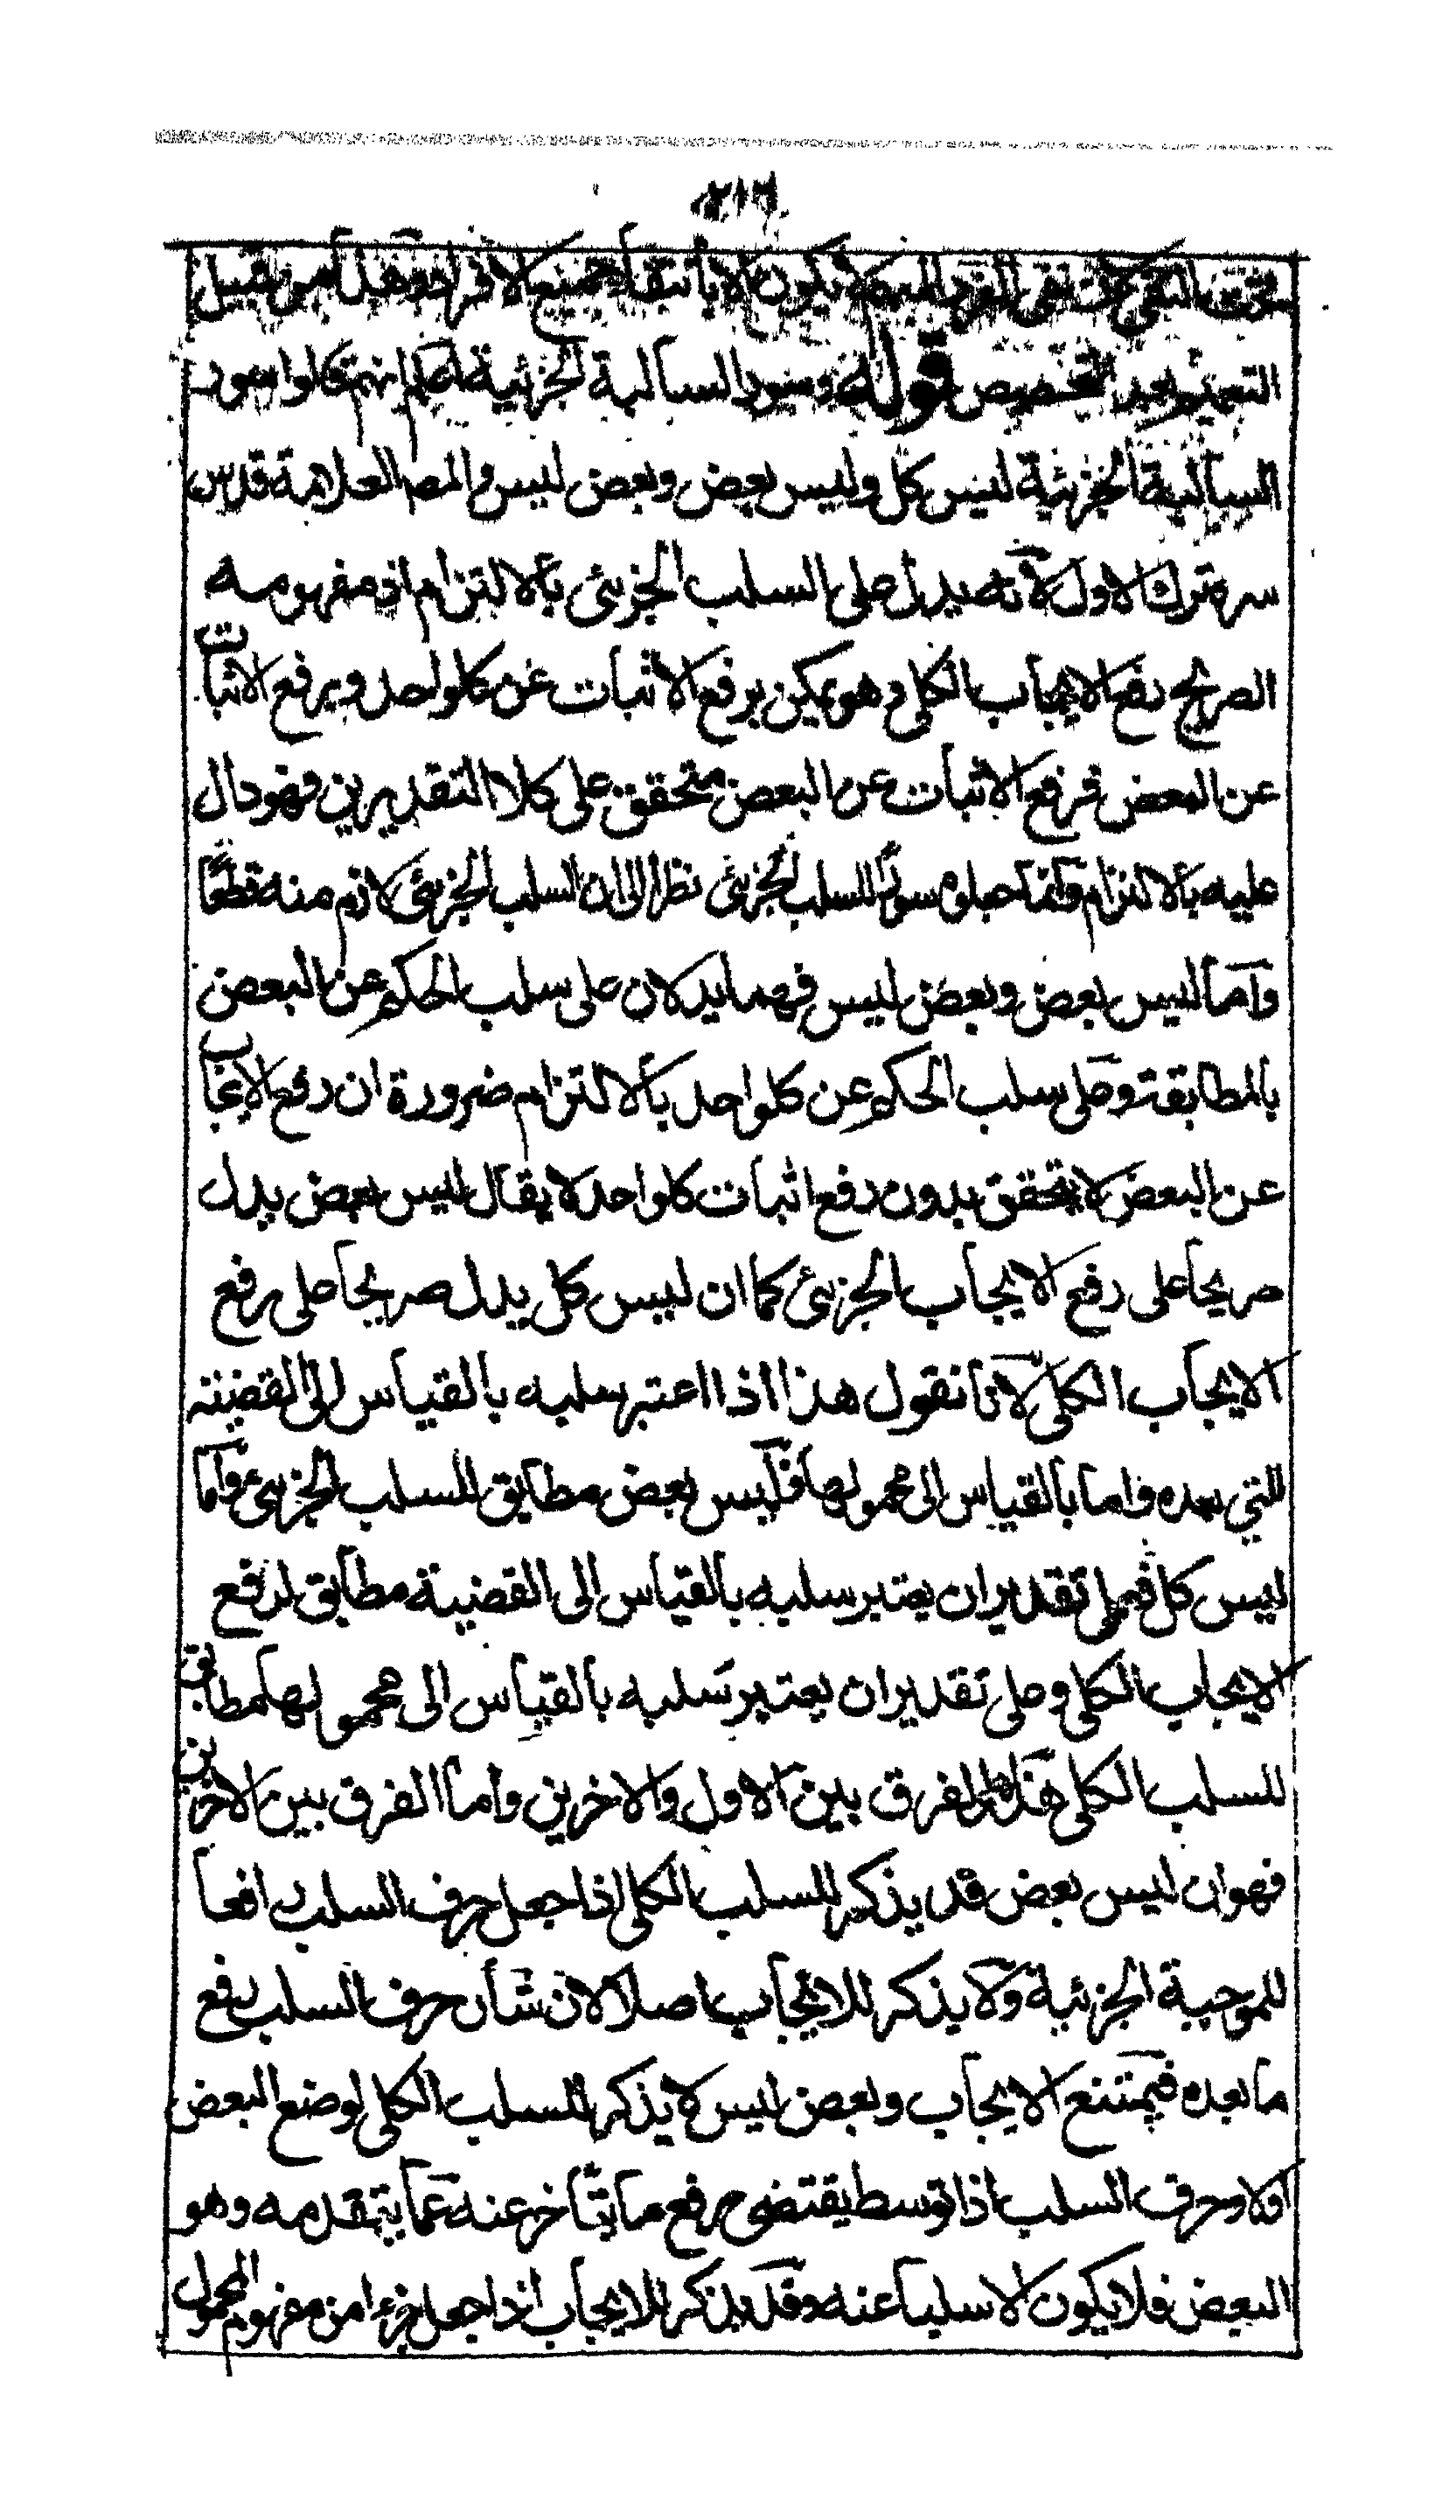 ٢١٦
النفي فان نفى الفرد المبهم لا يكون الا بانتفاء جميع الافراد وهذا من قبيل
التعميم بعد التخصيص قوله وسور السالبة الجزئية اعلم انهم قالوا سور
السالبة الجزئية ليس كل وليس بعض وبعض ليس والمص العلامة قدس
سره ترك الاول لانه يدل على السلب الجزئى بالالتزام اذ مفهومه
الصريح رفع الايجاب الكلى وهو يمكن برفع الاثبات عن كلواحد وبرفع الاثبات
عن البعض فرفع الاثبات عن البعض متحقق على كلا التقديرين فهو دال
عليه بالالتزام وانما جعلوه سورا للسلب الجزئى نظرا الى ان السلب الجزئى لازم منه قطعا
واما ليس بعض وبعض ليس فهما يدلان على سلب الحكم عن البعض
بالمطابقة وعلى سلب الحكم عن كلواحد بالالتزام ضرورة ان رفع الايجاب
عن البعض لا يتحقق بدون رفع اثبات كلواحد لا يقال ليس بعض يدل
صريحا على رفع الايجاب الجزئى كما ان ليس كل يدل صريحا على رفع
الايجاب الكلى لانا نقول هذا اذا اعتبر سلبه بالقياس الى القضية
التي بعده فاما بالقياس الى محمولها فليس بعض مطابق للسلب الجزئى واما
ليس كل فعلى تقدير ان يعتبر سلبه بالقياس الى القضية مطابق لرفع
الايجاب الكلى وعلى تقدير ان يعتبر سلبه بالقياس الى محمولها مطابق
للسلب الكلى هذا هو الفرق بين الاول والاخرين واما الفرق بين الاخرين
فهو ان ليس بعض قد يذكر للسلب الكلى اذا جعل حرف السلب رافعا
للموجبة الجزئية ولا يذكر للايجاب اصلا لان شأن حرف السلب رفع
ما بعده فيمتنع الايجاب وبعض ليس لا يذكر للسلب الكلى لوضع البعض
اولا وحرف السلب اذا توسط يقتضى رفع ما يتأخر عنه عما يتقدمه وهو
البعض فلا يكون الا سلبا عنه وقد يذكر للايجاب اذا جعل جزءا من مفهوم المحمول